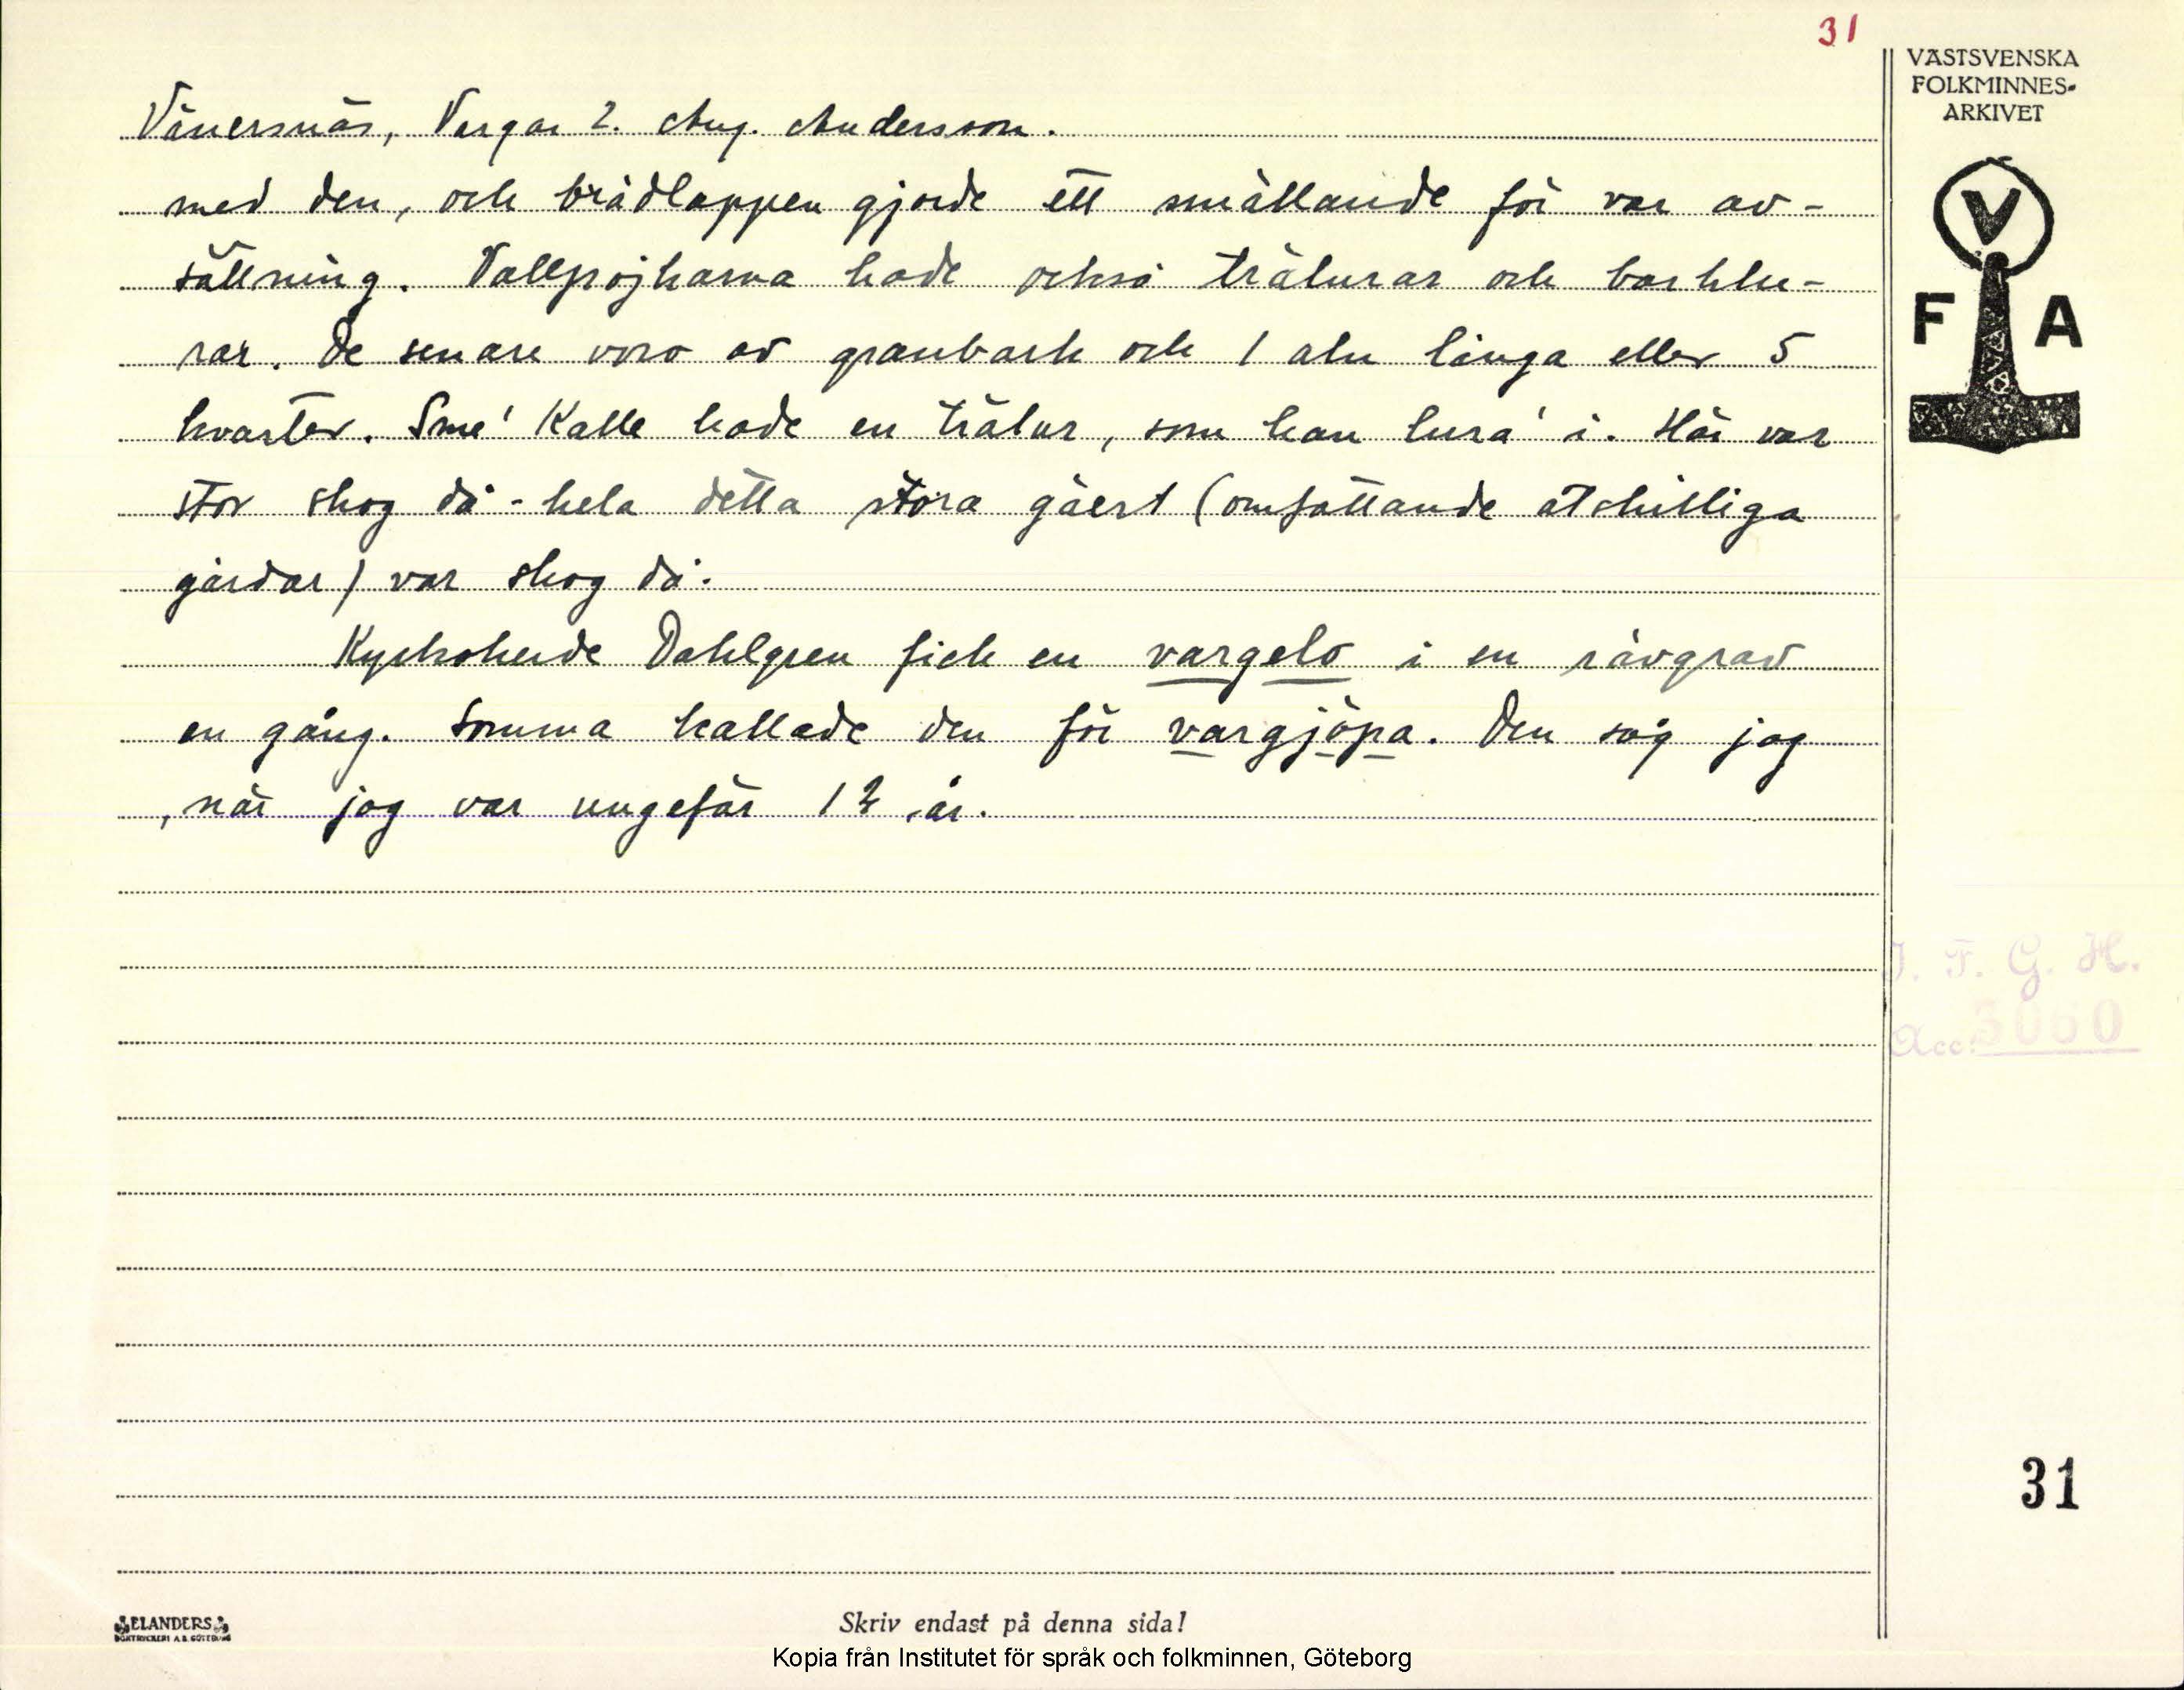 31
VÄSTSVENSKA
FOLKMINNES-
ARKIVET
Vänersnäs, Vargar 2. Aug. Andersson.
med den, och brädlappen gjorde ett smällande för var av-
sättning. Vallpojkarna hade också trälurar och barklu-
rar. De senare voro av granbark och 1 aln långa eller 5
kvarter. Sme' Kalle hade en trälur, som han lura' i. Här var
stor skog då - hela detta stora gäert (omfattande åtskilliga
gårdar) var skog då.
Kyrkoherde Dahlgren fick en vargelo i en rävgrav
en gång. Somma kallade den för vargjöpa. Den såg jag
, när jag var ungefär 12 år.
V
F A
I. F. G. H.
Acc. 3060
31
ELANDERS
BOKTRYCKERI A.B. GÖTEBORG
Skriv endast på denna sida!
Kopia från Institutet för språk och folkminnen, Göteborg